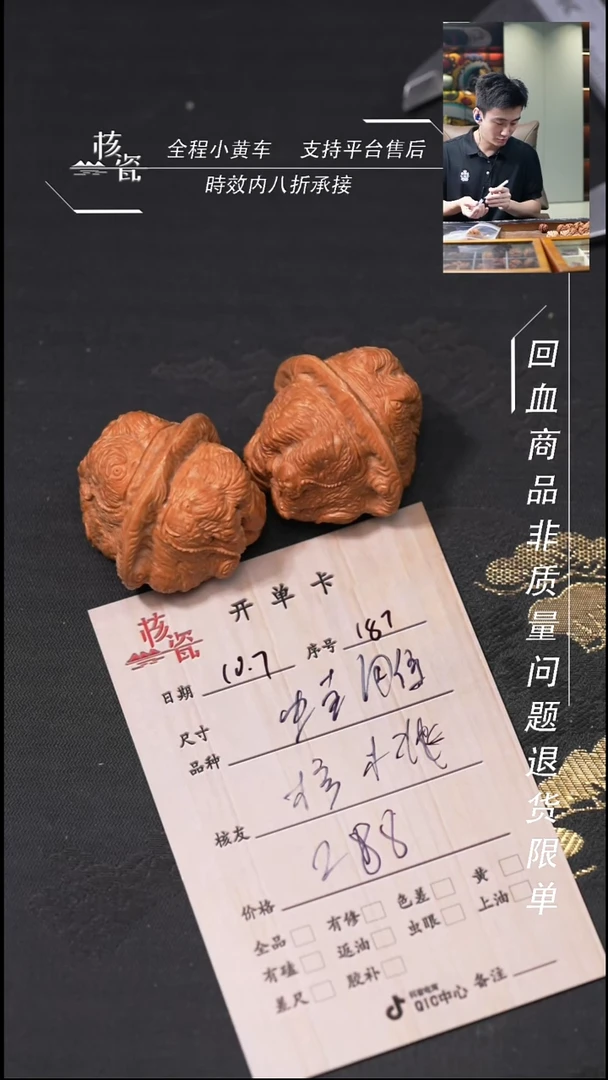 核瓷
全程小黄车 支持平台售后
時效内八折承接
回血商品非质量问题退货限单
核瓷
开单卡
日期 10.7 序号 187
尺寸
品种
核友
288
价格
全品 有修 色差 黄
有磕 返油 虫眼 上油
差尺 胶补
抖音电商
QIC中心 备注